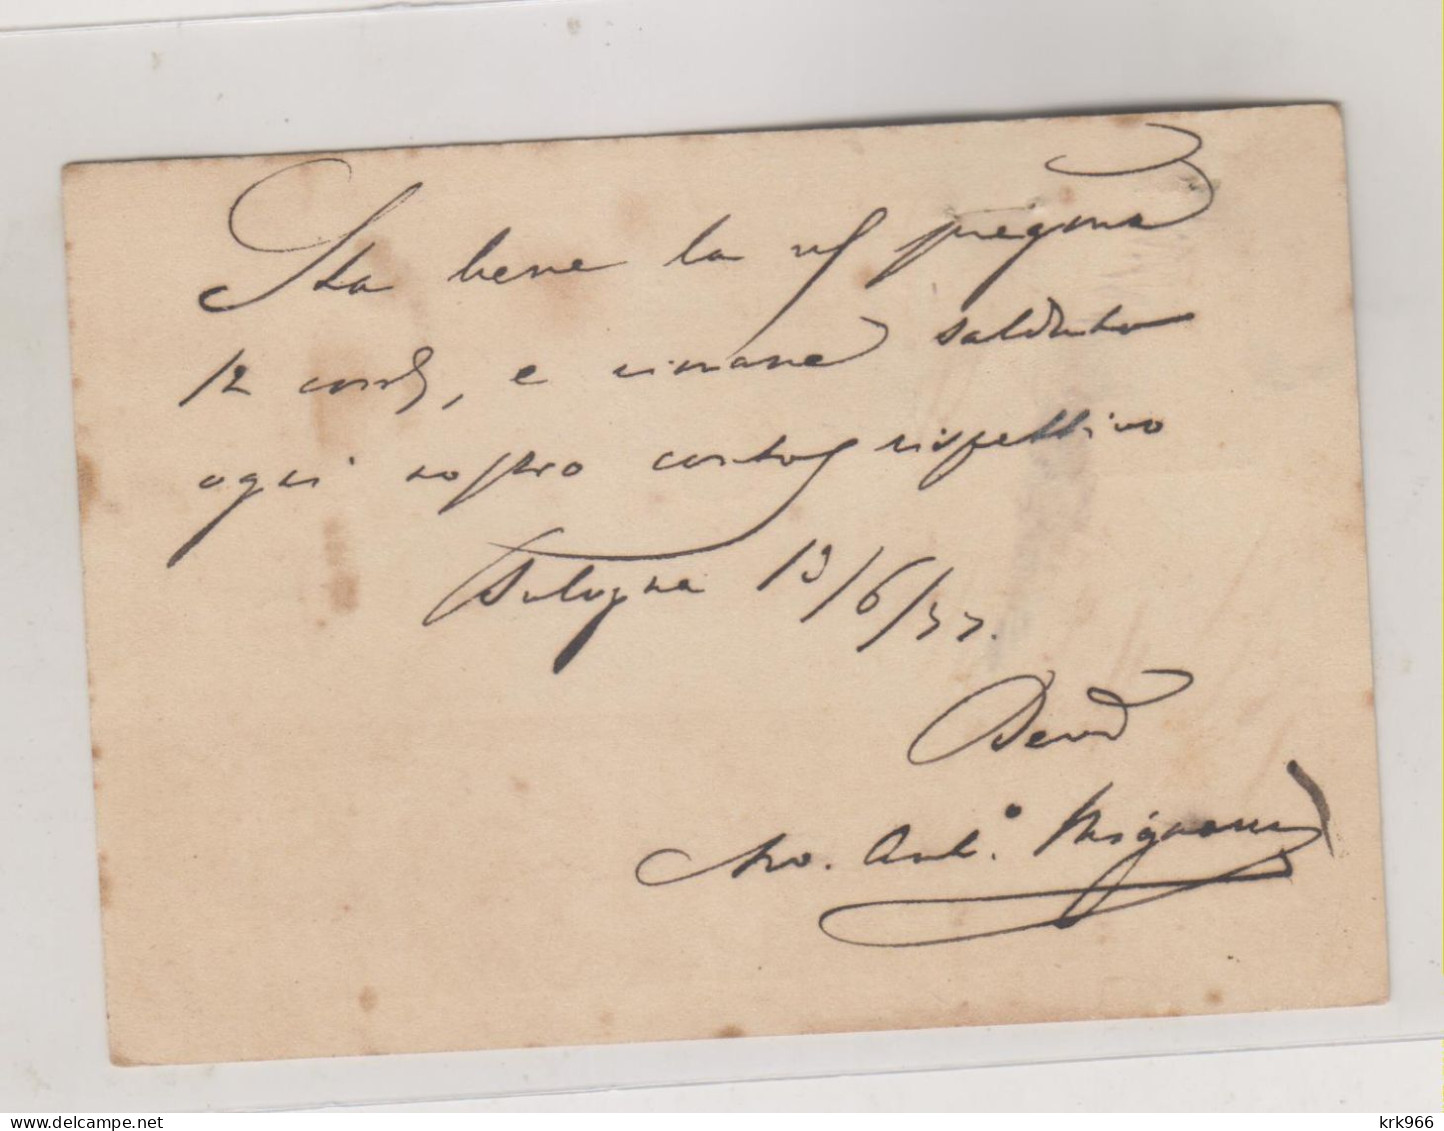 Sta bene la
12 corr.e, e rimane saldato
ogni nostro conto rispettivo
Bologna 13/6/77.
Dev.
Avv. Ant.°
delcampe.net
krk966